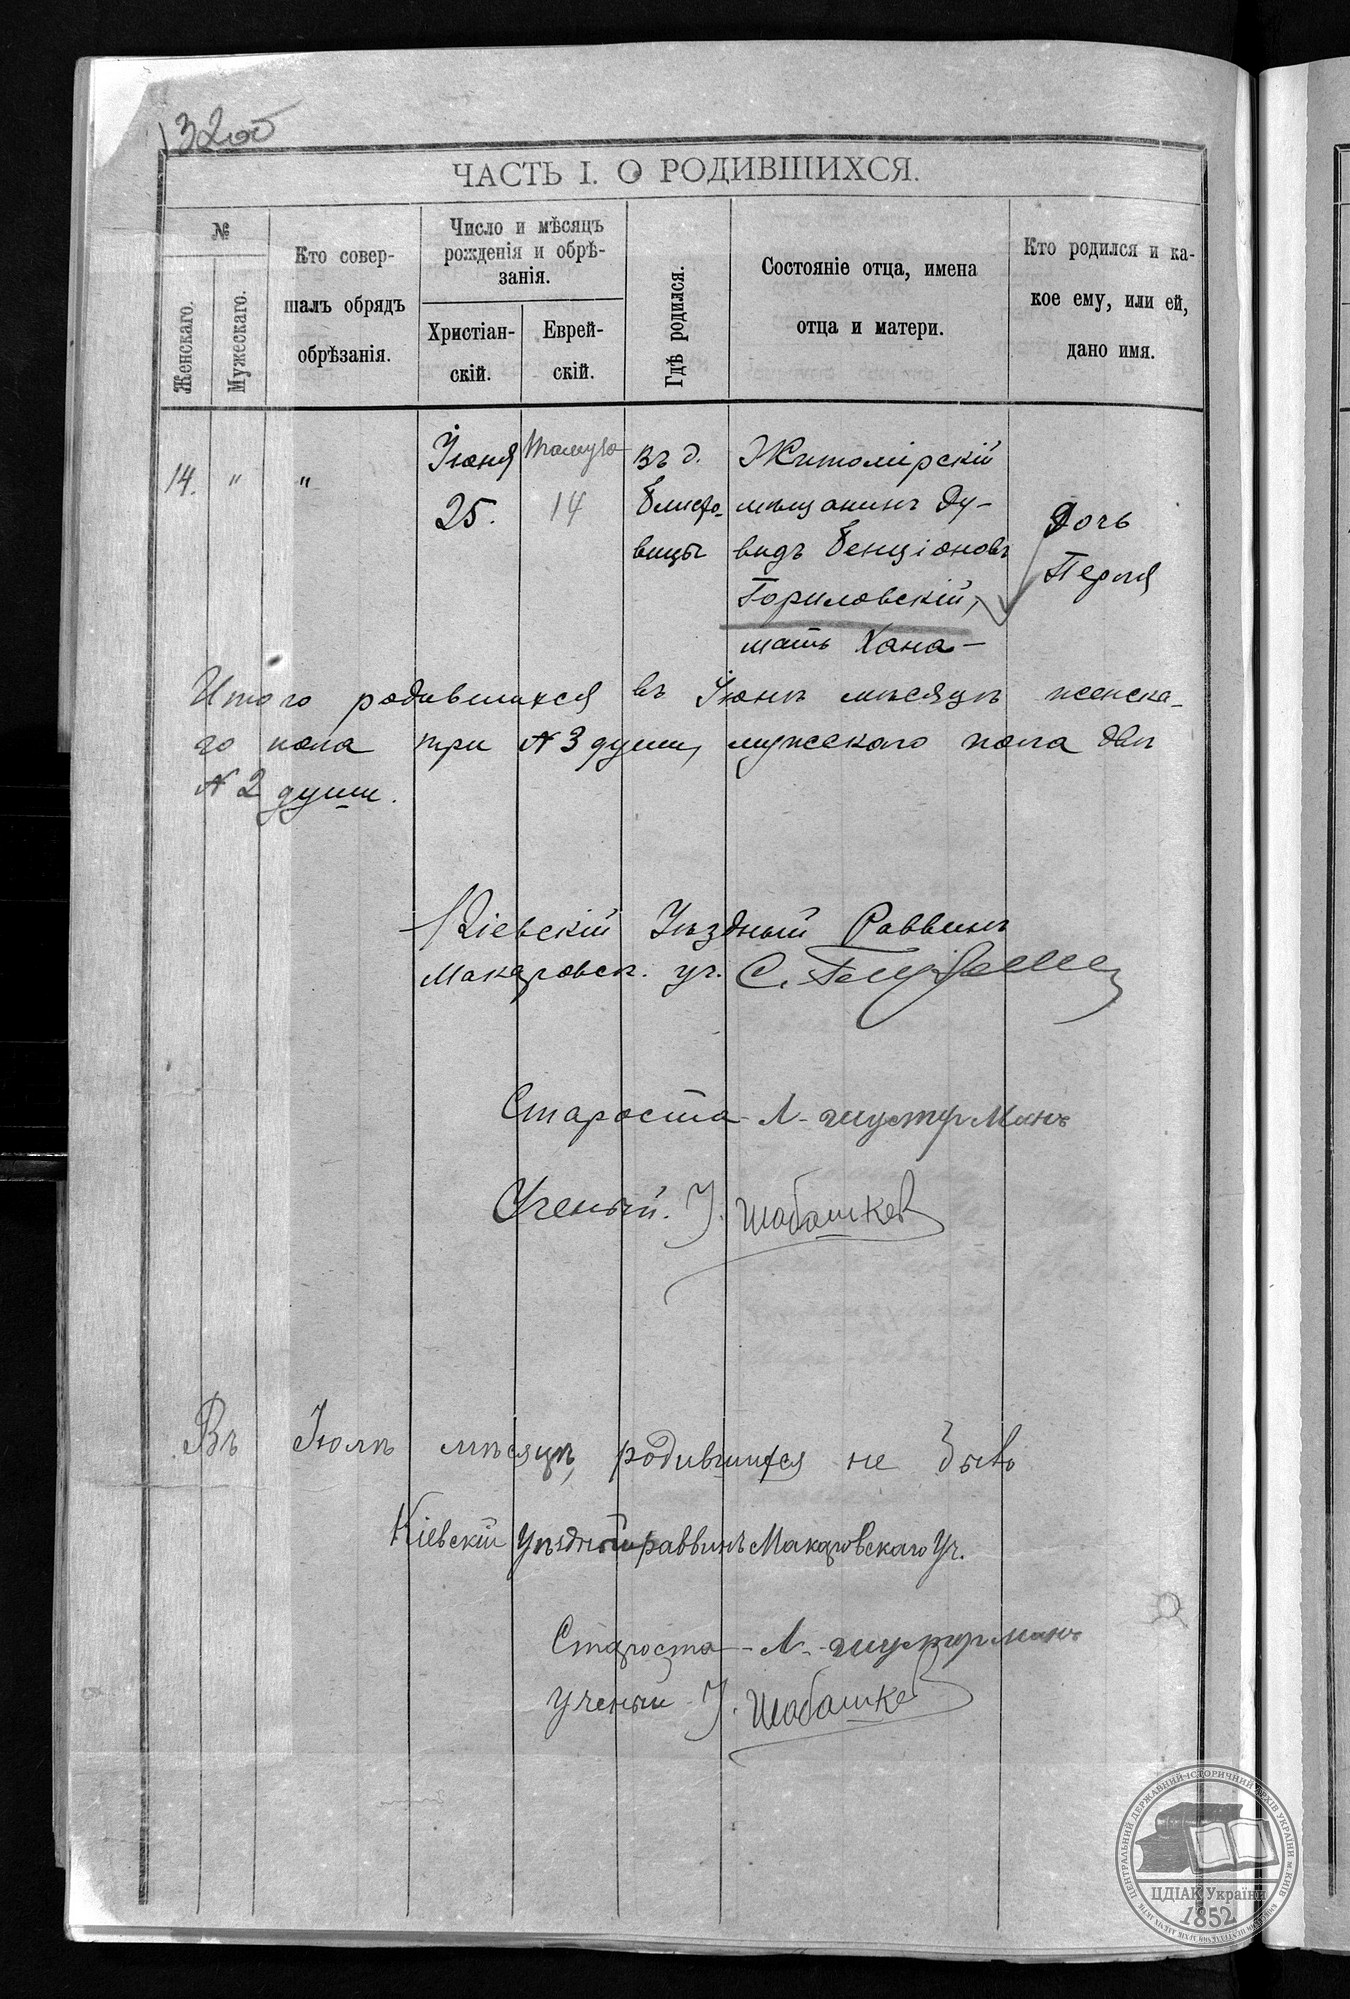 320об
ЧАСТЬ I. О РОДИВШИХСЯ.
№
Женскаго.
Мужескаго.
Кто совер-
шалъ обрядъ
обрѣзанія.
Число и мѣсяцъ
рожденія и обрѣ-
занія.
Христіан-
скій.
Еврей-
скій.
Гдѣ родился.
Состояніе отца, имена
отца и матери.
Кто родился и ка-
кое ему, или ей,
дано имя.
14. " "
Іюня
25.
Тамуза
14
въ д.
Блисто-
вицы
Житомірскій
мѣщанинъ Ду-
видъ Бенціоновъ
Гориловскій,
мать Хана —
Дочь
Перля
Итого родившихся въ Іюнѣ мѣсяцѣ женска-
го пола три № 3 души, мужескаго пола двѣ
№ 2 души.
Кіевскій Уѣздный Раввинъ
Макаровск. уч. С.
Староста Л. Шустерманъ
Ученый. І. Шабашкев
Въ Іюлѣ мѣсяцѣ родившихся не было
Кіевскій Уѣздный раввинъ Макаровскаго Уч.
Староста Л. Шустерманъ
Ученый І. Шабашкев
ЦЕНТРАЛЬНИЙ ДЕРЖАВНИЙ ІСТОРИЧНИЙ АРХІВ УКРАЇНИ м. КИЇВ
ЦДІАК України
1852